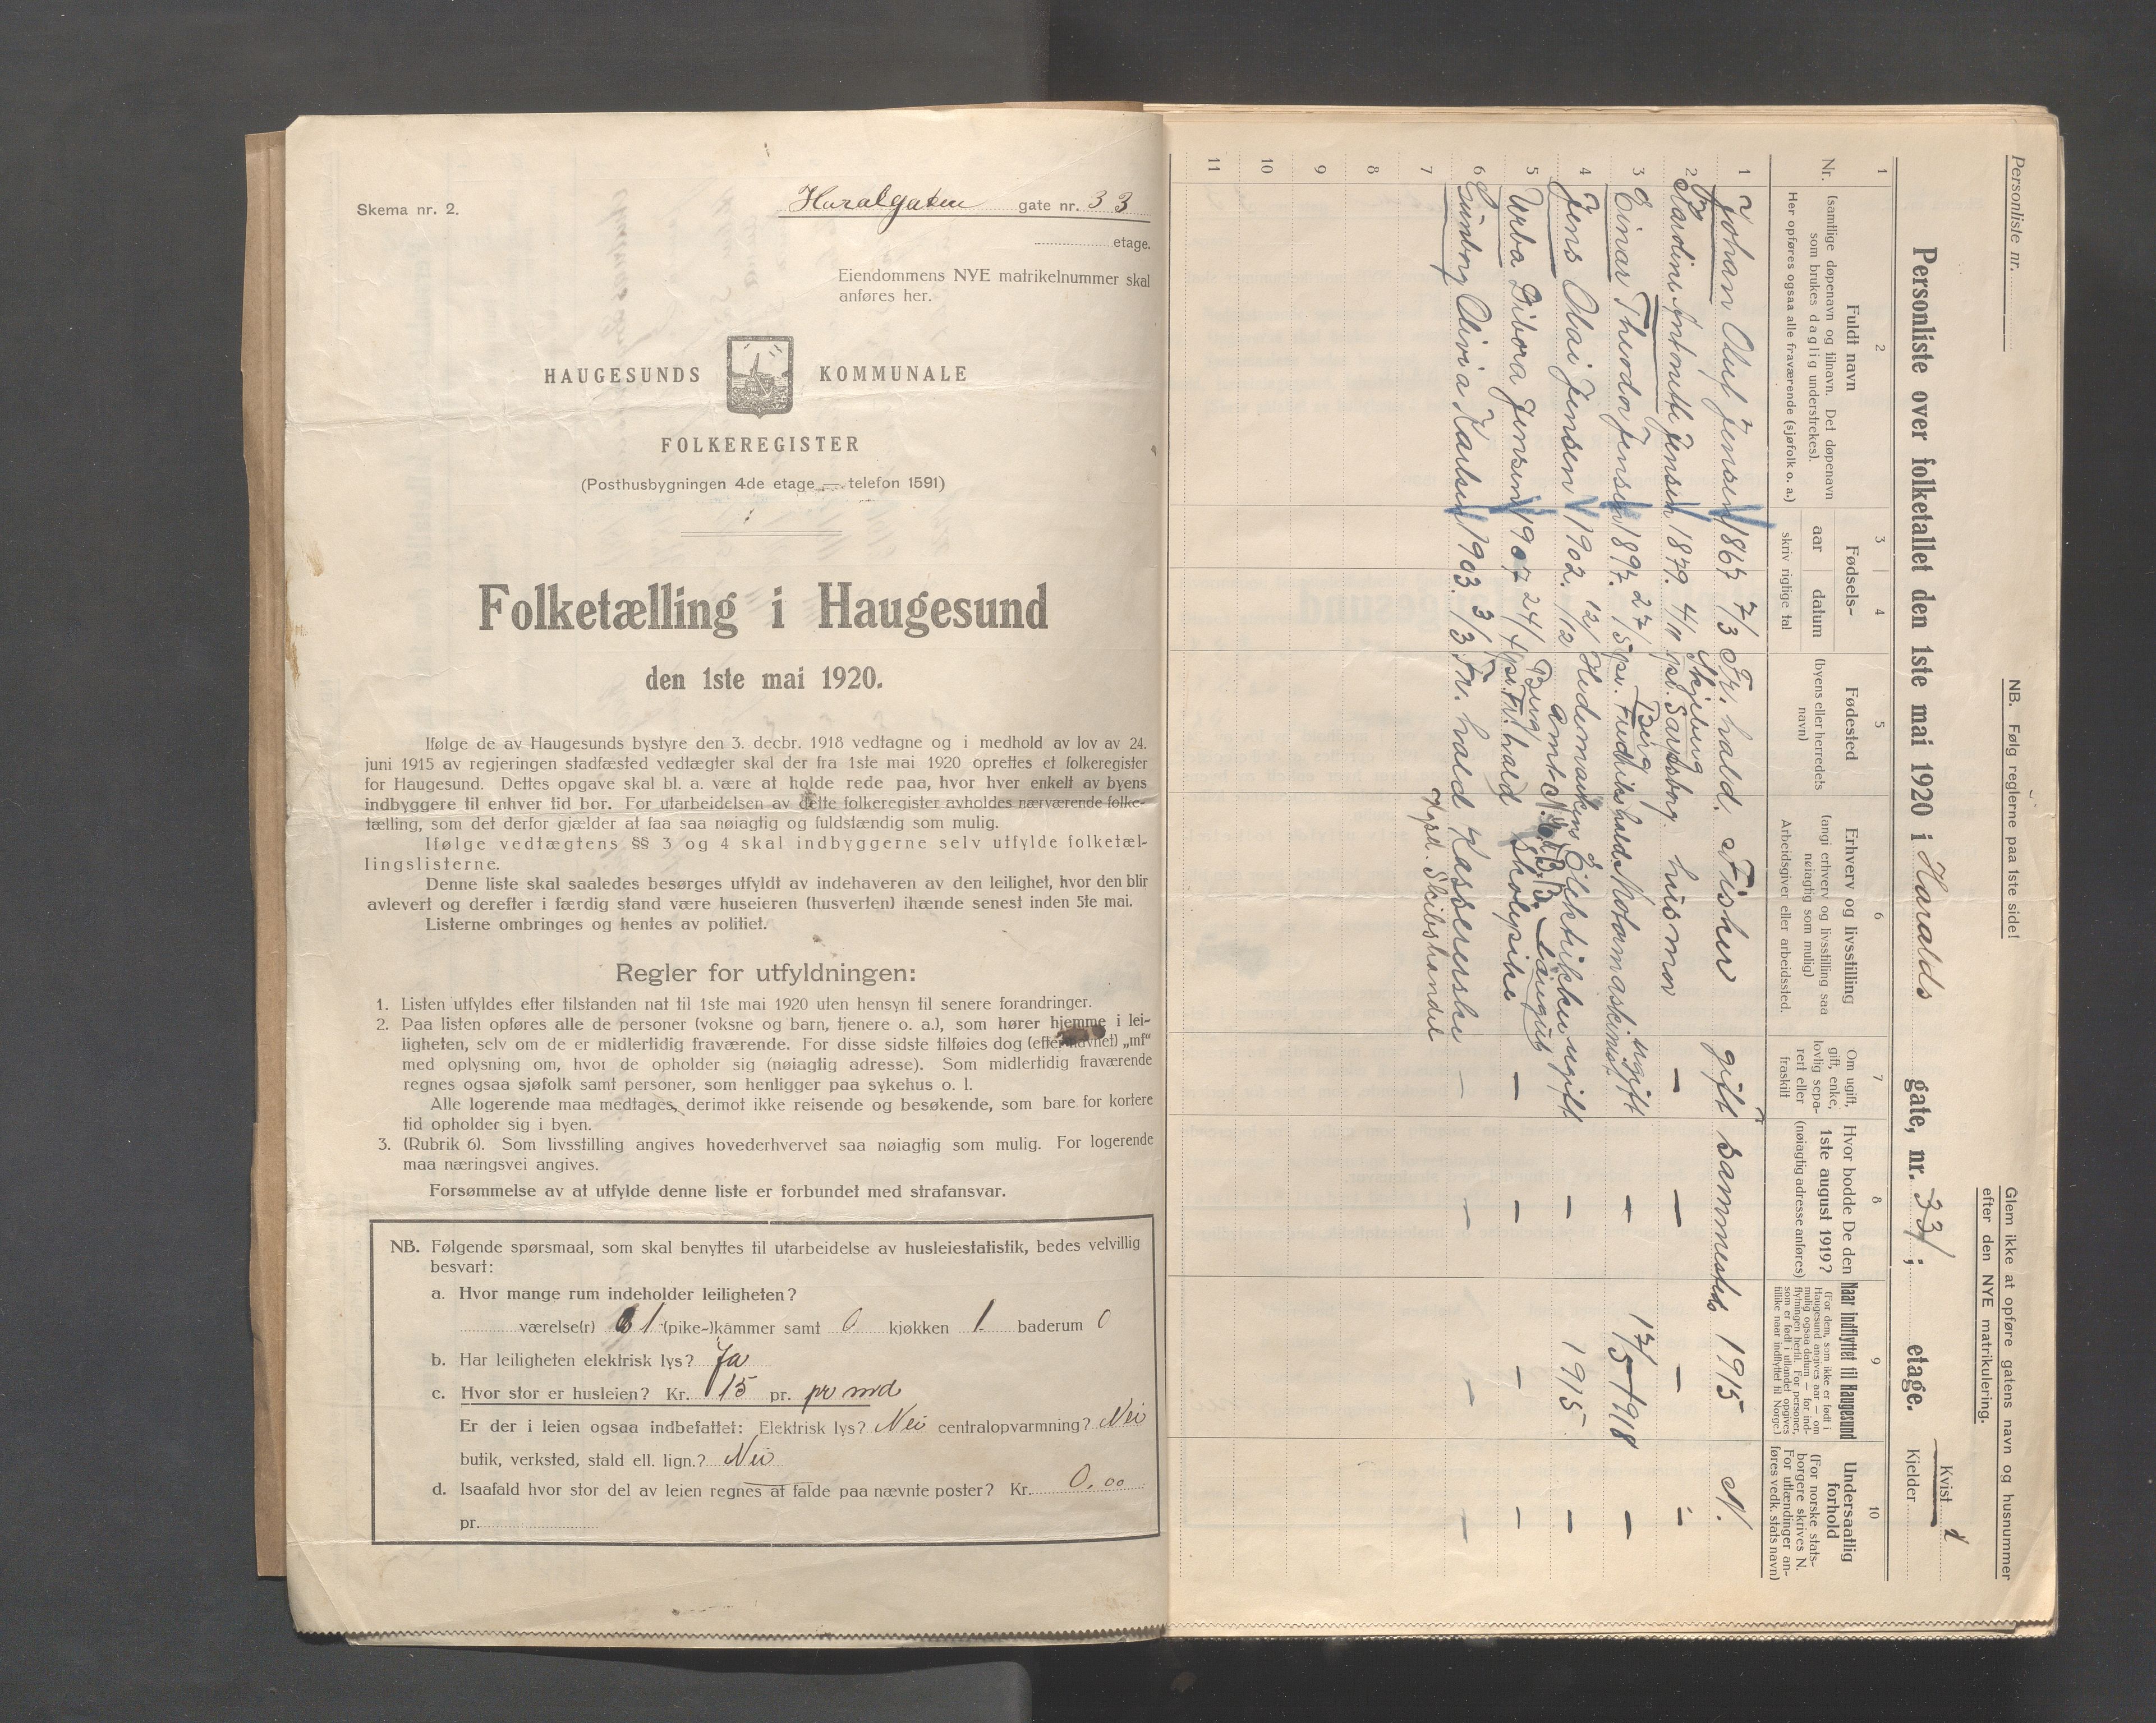 Skema nr. 2.
Haralgaten gate nr. 33
etage.
Eiendommens NYE matrikelnummer skal
anføres her.
HAUGESUNDS KOMMUNALE
FOLKEREGISTER
(Posthusbygningen 4de etage — telefon 1591)
Folketælling i Haugesund
den 1ste mai 1920.
Ifølge de av Haugesunds bystyre den 3. decbr. 1918 vedtagne og i medhold av lov av 24.
juni 1915 av regjeringen stadfæsted vedtægter skal der fra 1ste mai 1920 oprettes et folkeregister
for Haugesund. Dettes opgave skal bl. a. være at holde rede paa, hvor hver enkelt av byens
indbyggere til enhver tid bor. For utarbeidelsen av dette folkeregister avholdes nærværende folke-
tælling, som det derfor gjælder at faa saa nøiagtig og fuldstændig som mulig.
Ifølge vedtægtens §§ 3 og 4 skal indbyggerne selv utfylde folketæl-
lingslisterne.
Denne liste skal saaledes besørges utfyldt av indehaveren av den leilighet, hvor den blir
avlevert og derefter i færdig stand være huseieren (husverten) ihænde senest inden 5te mai.
Listerne ombringes og hentes av politiet.
Regler for utfyldningen:
1. Listen utfyldes efter tilstanden nat til 1ste mai 1920 uten hensyn til senere forandringer.
2. Paa listen opføres alle de personer (voksne og barn, tjenere o. a.), som hører hjemme i lei-
ligheten, selv om de er midlertidig fraværende. For disse sidste tilføies dog (efter navnet) „mf"
med oplysning om, hvor de opholder sig (nøiagtig adresse). Som midlertidig fraværende
regnes ogsaa sjøfolk samt personer, som henligger paa sykehus o. l.
Alle logerende maa medtages, derimot ikke reisende og besøkende, som bare for kortere
tid opholder sig i byen.
3. (Rubrik 6). Som livsstilling angives hovederhvervet saa nøiagtig som mulig. For logerende
maa næringsvei angives.
Forsømmelse av at utfylde denne liste er forbundet med strafansvar.
NB. Følgende spørsmaal, som skal benyttes til utarbeidelse av husleiestatistik, bedes velvillig
besvart:
a. Hvor mange rum indeholder leiligheten?
værelse(r) 1 (pike-)kammer samt 0 kjøkken 1 baderum 0
b. Har leiligheten elektrisk lys? Ja
c. Hvor stor er husleien? Kr. 15 pr. pr md
Er der i leien ogsaa indbefattet: Elektrisk lys? Nei centralopvarmning? Nei
butik, verksted, stald ell. lign.? Nei
d. Isaafald hvor stor del av leien regnes at falde paa nævnte poster? Kr. 0,00
pr.
Personliste nr.
NB. Følg reglerne paa 1ste side!
Glem ikke at opføre gatens navn og husnummer
efter den NYE matrikulering.
Personliste over folketallet den 1ste mai 1920 i Haralds gate, nr. 33 ; etage. Kvist 1
Kjelder
1 2 3 4 5 6 7 8 9 10
Nr.
Fuldt navn
(samtlige døpenavn og tilnavn. Det døpenavn
som brukes daglig understrekes).
Her opføres ogsaa alle fraværende (sjøfolk o. a.)
Fødsels-
aar datum
skriv rigtige tal
Fødested
(byens eller herredets
navn)
Erhverv og livsstilling
(angi erhverv og livsstilling saa
nøiagtig som mulig)
Arbeidsgiver eller arbeidssted.
Om ugift,
gift, enke,
lovlig sepa-
rert eller
fraskilt
Hvor bodde De den
1ste august 1919?
(nøiagtig adresse anføres)
Naar indflyttet til Haugesund
(For dem, som ikke er født i
Haugesund angives aar — om
mulig ogsaa datum — for ind-
flytningen hertil. For personer,
som er født i utlandet opgives
tillike naar indflyttet til Norge.)
Undersaatlig
forhold
(For norske stats-
borgere skrives N.
For utlændinger an-
føres vedk. stats navn)
1 Johan Oluf Jensen 1867 7/3 Fr. hald. Fisker gift sammesteds 1915 N.
Skjeberg
2 Hardine Antonette Jensen 1879. 4/11 pr. Sarpsborg. husmor — — — –
Berg
3 Einar Theodor Jensen 1897. 27/5 pr. Fredrikshald. Motormaskinist ugift — 17/5 1918 —
4 Jens Olai Jensen 1902. 12/12 Hedemarkens Elektriker ugift — 1915 —
amt
Berg
5 Urba Debora Jensen 1907 24/4 pr. Fr. hald Skolepike — — — —
6 Gunborg Olivia Karlsen 1903. 3/3 Fr. hald Kassererske — — — —
7 Skibshandel
8
9
10
11